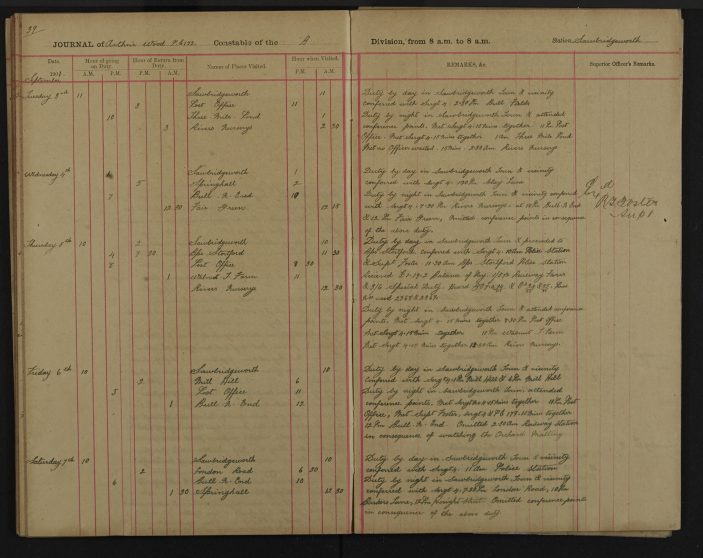 39
JOURNAL of Arthur Wood P.C 172. Constable of the A
Division, from 8 a.m. to 8 a.m. Station Sawbridgeworth
Date. Hour of going on Duty. Hour of Return from Duty. Names of Places Visited. Hour when Visited. REMARKS, &c. Superior Officer's Remarks.
190 A.M. P.M. A.M. P.M. P.M. A.M.
September
Tuesday 3rd 11 Sawbridgeworth 11
3 Post Office 11
10 Three Mile Pond 1
3 Rivers Nurserys 2 30
Duty by day in Sawbridgeworth Town & vicinity
conferred with Sergt 4 2-30 Pm Bull Fields
Duty by night in Sawbridgeworth Town & attended
conference points. Met Sergt 4. 15 mins together 11 Pm Post
Office. Met Sergt 4. 15 mins together 1 am Three Mile Pond
Met no Officer waited 15 mins. 2-30 Am Rivers Nurserys
Wednesday 4th Sawbridgeworth 1
5 Springhall 2
7 Bull R. End 10
12 30 Fair Green 12 15
Duty by day in Sawbridgeworth Town & vicinity
conferred with Sergt 4. Clay Lane
Duty by night in Sawbridgeworth Town & vicinity conferred
with Sergt 4. 7-30 Pm Rivers Nurserys. at 10 Pm Bull R. End
& 12 Pm Fair Green, Omitted conference points in consequence
of the above duty.
Supt
Thursday 5th 10 2 Sawbridgeworth 10
4 7 30 Bps Stortford 11 30
8 Post Office 8 30
1 Walnut T. Farm 11
Rivers Nurserys 12 30
Duty by day in Sawbridgeworth Town & proceeded to
Bps Stortford conferred with Sergt 4. 10 am Police Station
& Supt Foster 11-30 am Bps Stortford Police Station
Received £1-19-2 Balance of Pay. Railway Fares
& 9/6 Special Duty.
Duty by night in Sawbridgeworth Town & attended conference
points. Met Sergt 4. 15 mins together 8-30 Pm Post Office
Met Sergt 4. 15 mins together 11 Pm Walnut T. Farm
Met Sergt 4. 15 mins together 12-30 am Rivers Nurserys.
Friday 6th 10 Sawbridgeworth 10
2 Mill Hill 6
5 Post Office 11
1 Bull R. End 12
Duty by day in Sawbridgeworth Town & vicinity
Conferred with Sergt 4 Mill Hill & 6 Pm Mill Hill
Duty by night in Sawbridgeworth Town, attended
conference points. Met Sergt 4. 15 mins together 11 Pm Post
Office, Met Supt Foster, Sergt 4 & P.C 179. 15 mins together
12 Pm Bull R. End Omitted 2-30 am Railway Station
in consequence of watching the Orchard Malting
Saturday 7th 10 Sawbridgeworth 10
2 London Road 6 30
6 Bull R. End 10
1 30 Springhall 12 30
Duty by day in Sawbridgeworth Town & vicinity
conferred with Sergt 4. 11 am Police Station
Duty by night in Sawbridgeworth Town & vicinity
conferred with Sergt 4. 7-30 Pm London Road, 10 Pm
Lane, 12 Pm Knight Street Omitted conference points
in consequence of the above duty.